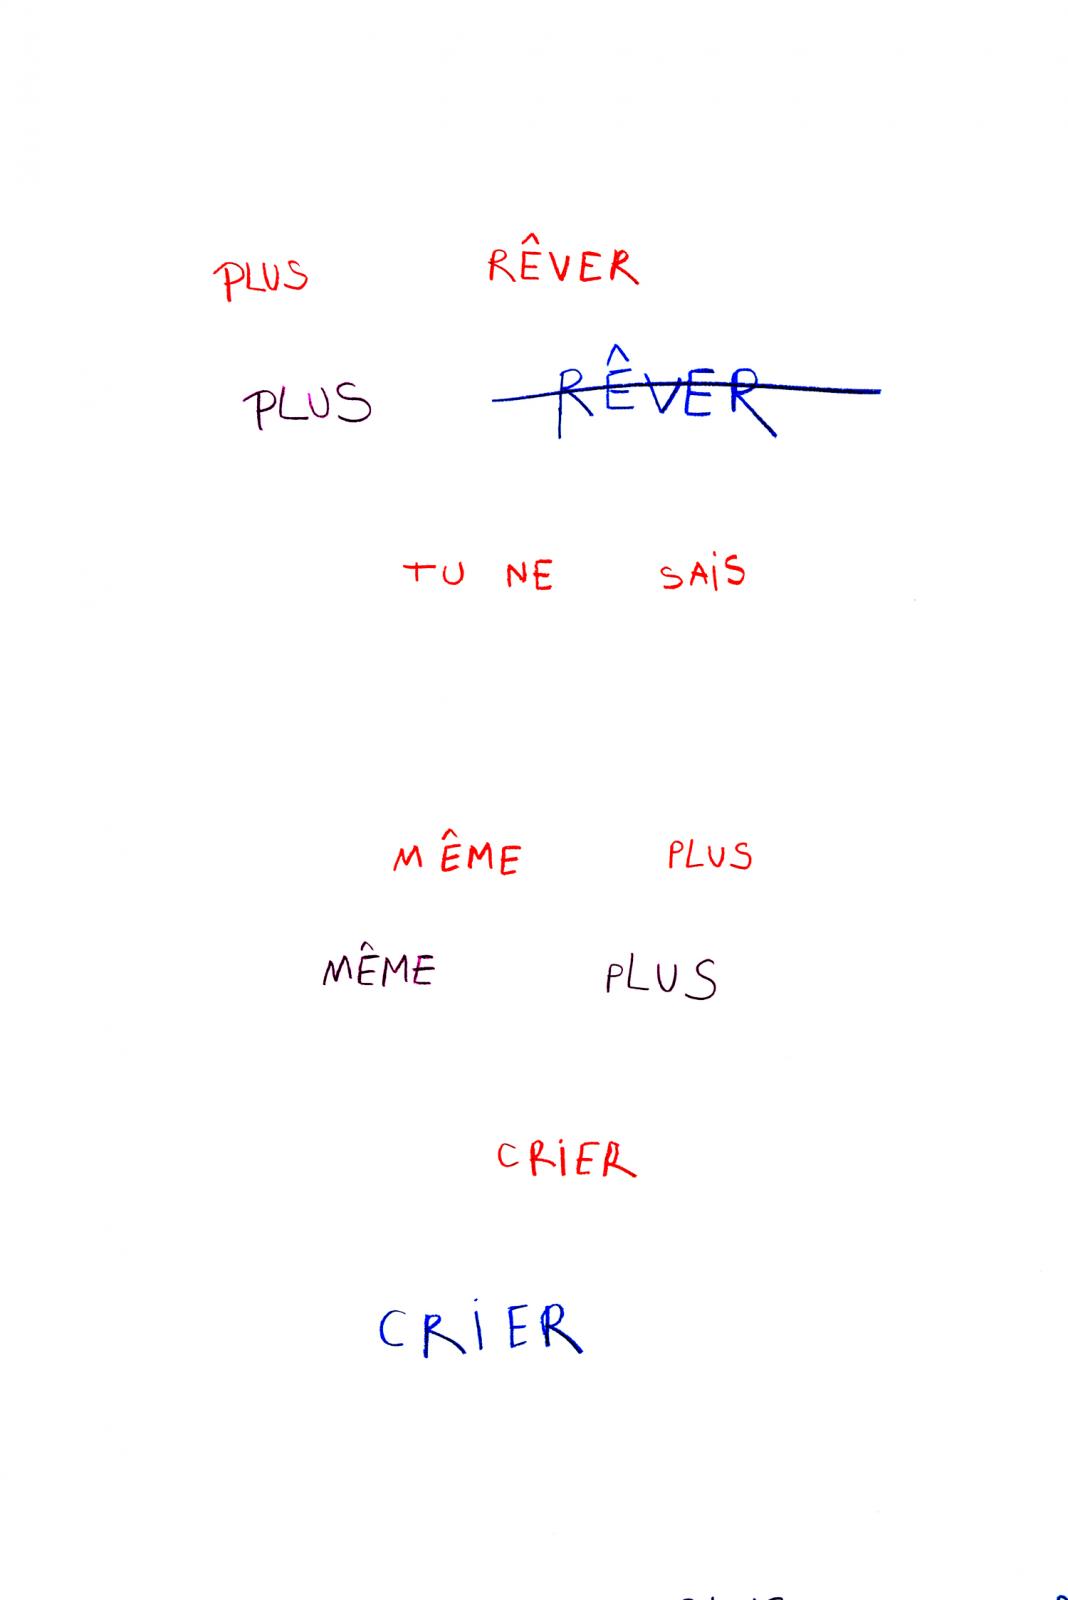 PLUS RÊVER
PLUS RÊVER
TU NE SAiS
MÊME PLUS
MÊME PLUS
CRiER
CRiER